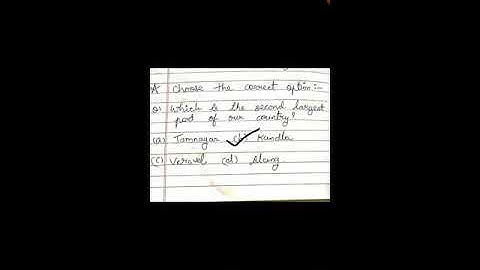 A Choose the correct option:-
Q) Which is the second largest
port of our country?
(a) Jamnagar (b) Kandla
(c) Veraval (d) Alang